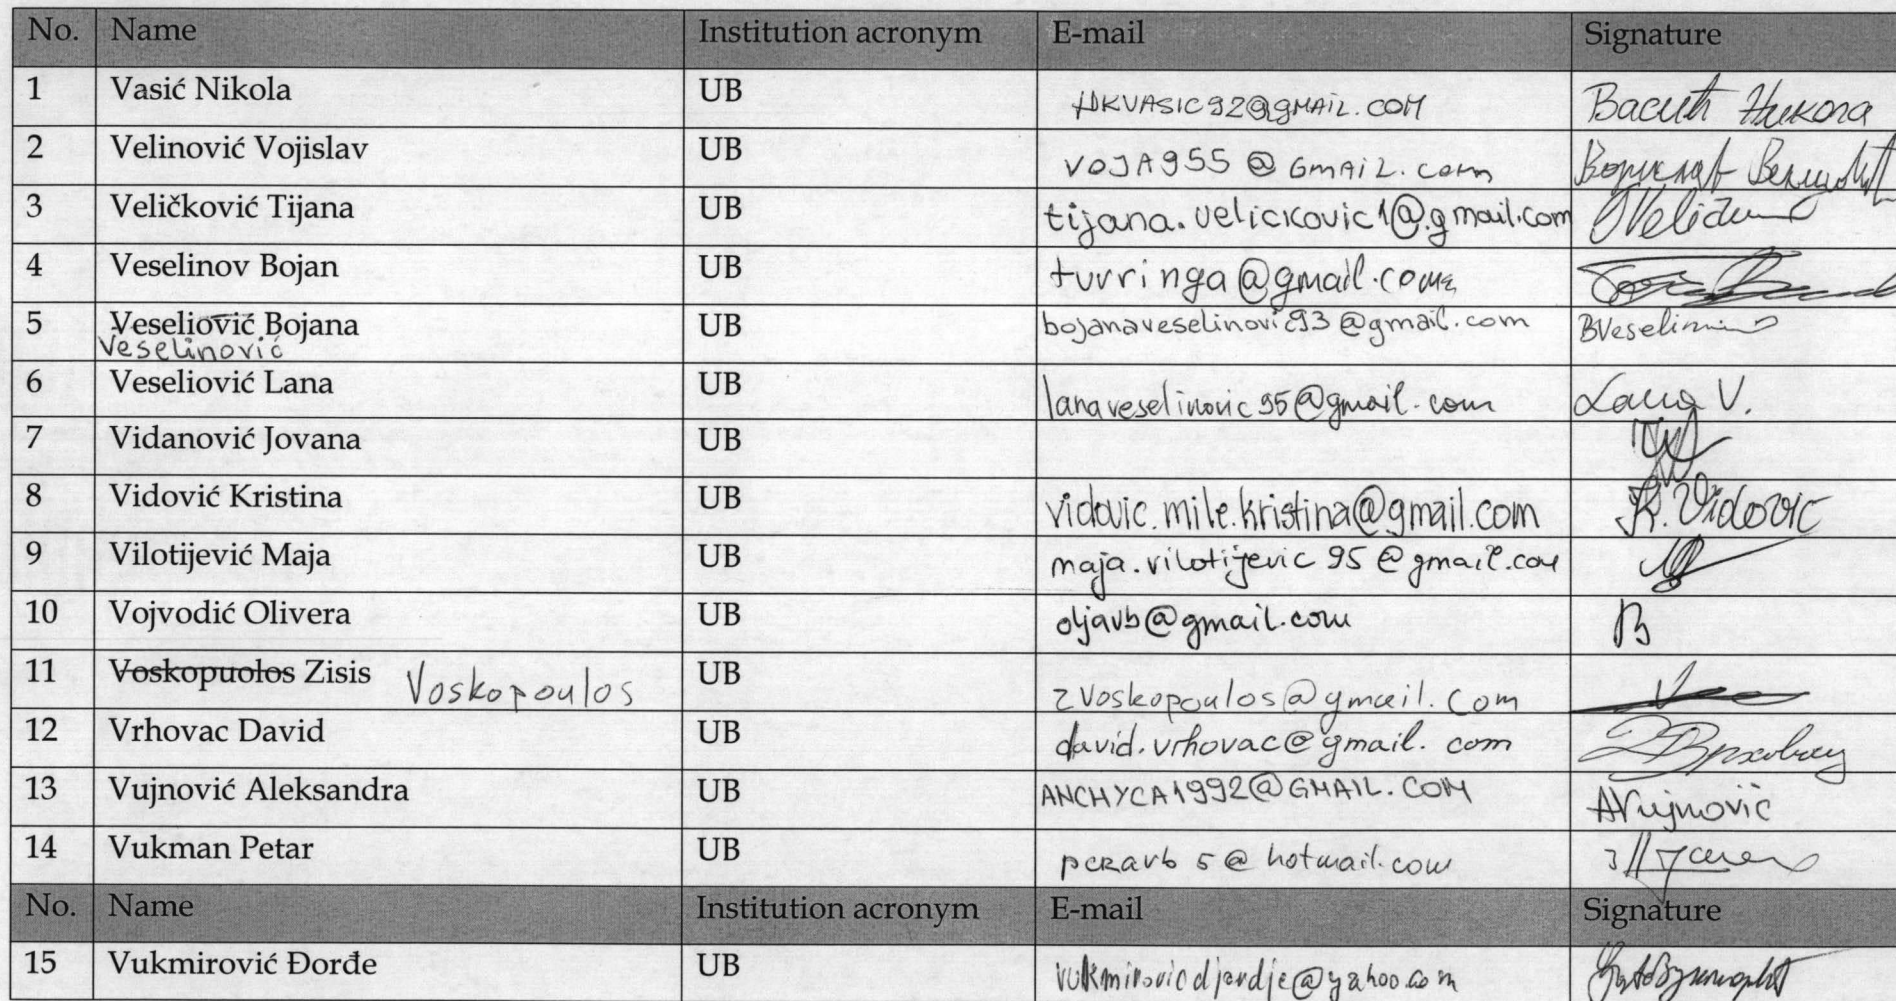 No. Name Institution acronym E-mail Signature
1 Vasić Nikola UB NKVASIC92@GMAIL.COM Васић Никола
2 Velinović Vojislav UB VOJA955@GMAIL.com
3 Veličković Tijana UB tijana.velickovic1@gmail.com
4 Veselinov Bojan UB turringa@gmail.com
5 Veseliović Bojana UB bojanaveselinovic93@gmail.com
Veselinović
6 Veseliović Lana UB lanaveselinovic95@gmail.com Lana V.
7 Vidanović Jovana UB
8 Vidović Kristina UB vidovic.mile.kristina@gmail.com K. Vidović
9 Vilotijević Maja UB maja.vilotijevic95@gmail.com
10 Vojvodić Olivera UB oljavb@gmail.com
11 Voskopuolos Zisis Voskopoulos UB zvoskopoulos@gmail.com
12 Vrhovac David UB david.vrhovac@gmail.com
13 Vujnović Aleksandra UB ANCHYCA1992@GMAIL.COM AVujnović
14 Vukman Petar UB peravb5@hotmail.com
No. Name Institution acronym E-mail Signature
15 Vukmirović Đorđe UB vukmirovicdjordje@yahoo.com